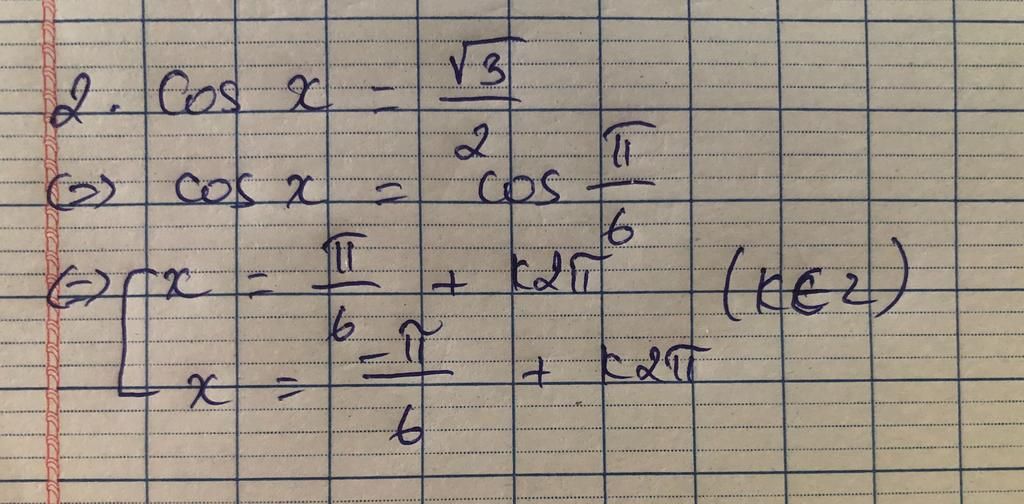 2. Cos x = √3/2
⇔ cos x = cos π/6
⇔ [ x = π/6 + k2π (k ∈ z)
x = -π/6 + k2π